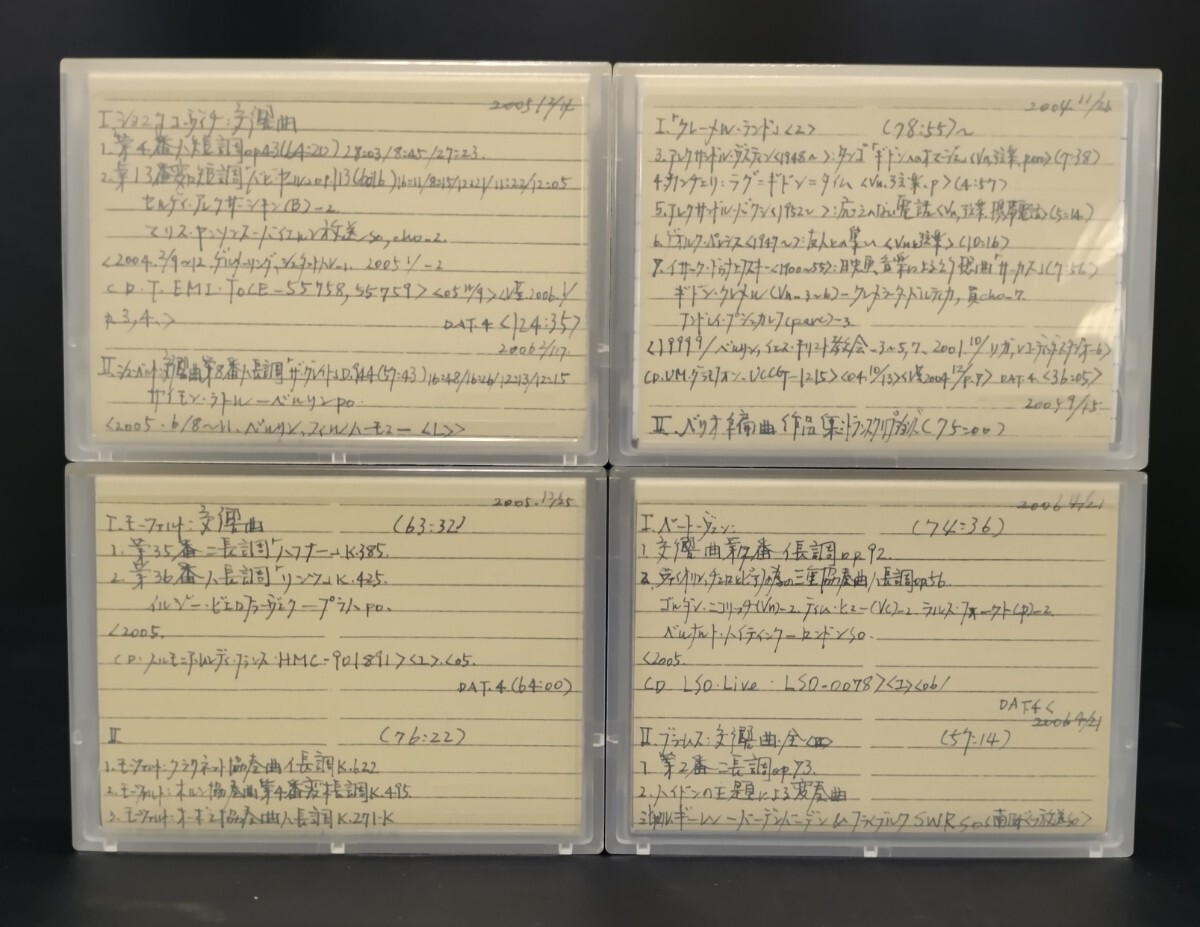 2005 12/14
I. ショスタコーヴィチ：交響曲
1. 第4番ハ短調op43(64:20) 28:03/8:45/27:23.
2. 第13番変ロ短調「バビ・ヤール」op113 16:11/8:15/12:21/11:22/12:05
セルゲイ・アレクサーシキン(B)-2.
マリス・ヤンソンス-バイエルン放送so, cho-2.
<2004. 2/9~12. 2005 1/ -2
CD. T. EMI. TOCE-55758, 55759> <05 10/9> 2006. 1/
p. 3, 4.>
DAT. 4 <124:35>
2006 2/17.
II. シューベルト：交響曲第8番ハ長調「ザ・グレイト」D.944(57:43) 16:48/16:26/12:13/12:15
サイモン・ラトル-ベルリンpo.
<2005. 6/8~11. ベルリン, フィルハーモニー <1>>
2004. 11/26
I. 「クレーメル・ランド」<2> (78:55)~
3. アレクサンドル <1948~>：タンゴ (7:38)
4. カンチェリ：ラグ=ギドン=タイム <Vn, 弦楽, p> (4:57)
5. アレクサンドル・バクシ<1952~>：応えのない電話<Vn, 弦楽, 携帯電話> (5:14)
6. ゲオルグス・ペレーツィス<1947~>：友人との集い <Vn & 弦楽> (10:16)
7. イサーク・ドゥナエフスキー<1900~55>：映画音楽による 「サーカス」(7:56)
ギドン・クレーメル(Vn-3~6)-クレメラータ・バルティカ, 員cho-7.
アンドレイ・プシュカレフ(perc)-3
<1999 9/ベルリン, イエス・キリスト教会-3~5, 7, 2001. 10/リガ, -6>
CD. UM. グラモフォン. UCCG-1215> <04. 10/13> 2004. 12/p. 9> DAT. 4 <36:05>
2005 9/15
II. ベリオ編曲作品集：トランスクリプション (75:00)
2005. 12/25
I. モーツァルト：交響曲 (63:32)
1. 第35番ニ長調「ハフナー」K.385.
2. 第36番ハ長調「リンツ」K.425.
イルジー・ビエロフラーヴェク-プラハpo.
<2005.
CD. ハルモニア・ムンディ・フランス. HMC-901891> <1> <05.
DAT. 4 (64:00)
II (76:22)
1. モーツァルト：クラリネット協奏曲イ長調K.622
2. モーツァルト：ホルン協奏曲第4番変ホ長調K.495.
3. モーツァルト：オーボエ協奏曲ハ長調K.271-K
2006 4/21
I. ベートーヴェン： (74:36)
1. 交響曲第7番イ長調op92.
2. ヴァイオリン, チェロとピアノの為の三重協奏曲ハ長調op56.
ゴルダン・ニコリッチ(Vn)-2. ティム・ヒュー(Vc)-2. ラルス・フォークト(p)-2
ベルナルト・ハイティンク-ロンドンso.
<2005.
CD LSO. Live. LSO-0078> <1> <06/
DAT. 4 <
2006 4/21
II. ブラームス：交響曲・全 (57:14)
1. 第2番ニ長調op73.
2. ハイドンの主題による変奏曲
ギーレン-バーデンバーデン&フライブルクSWR so <南西ドイツ放送so>